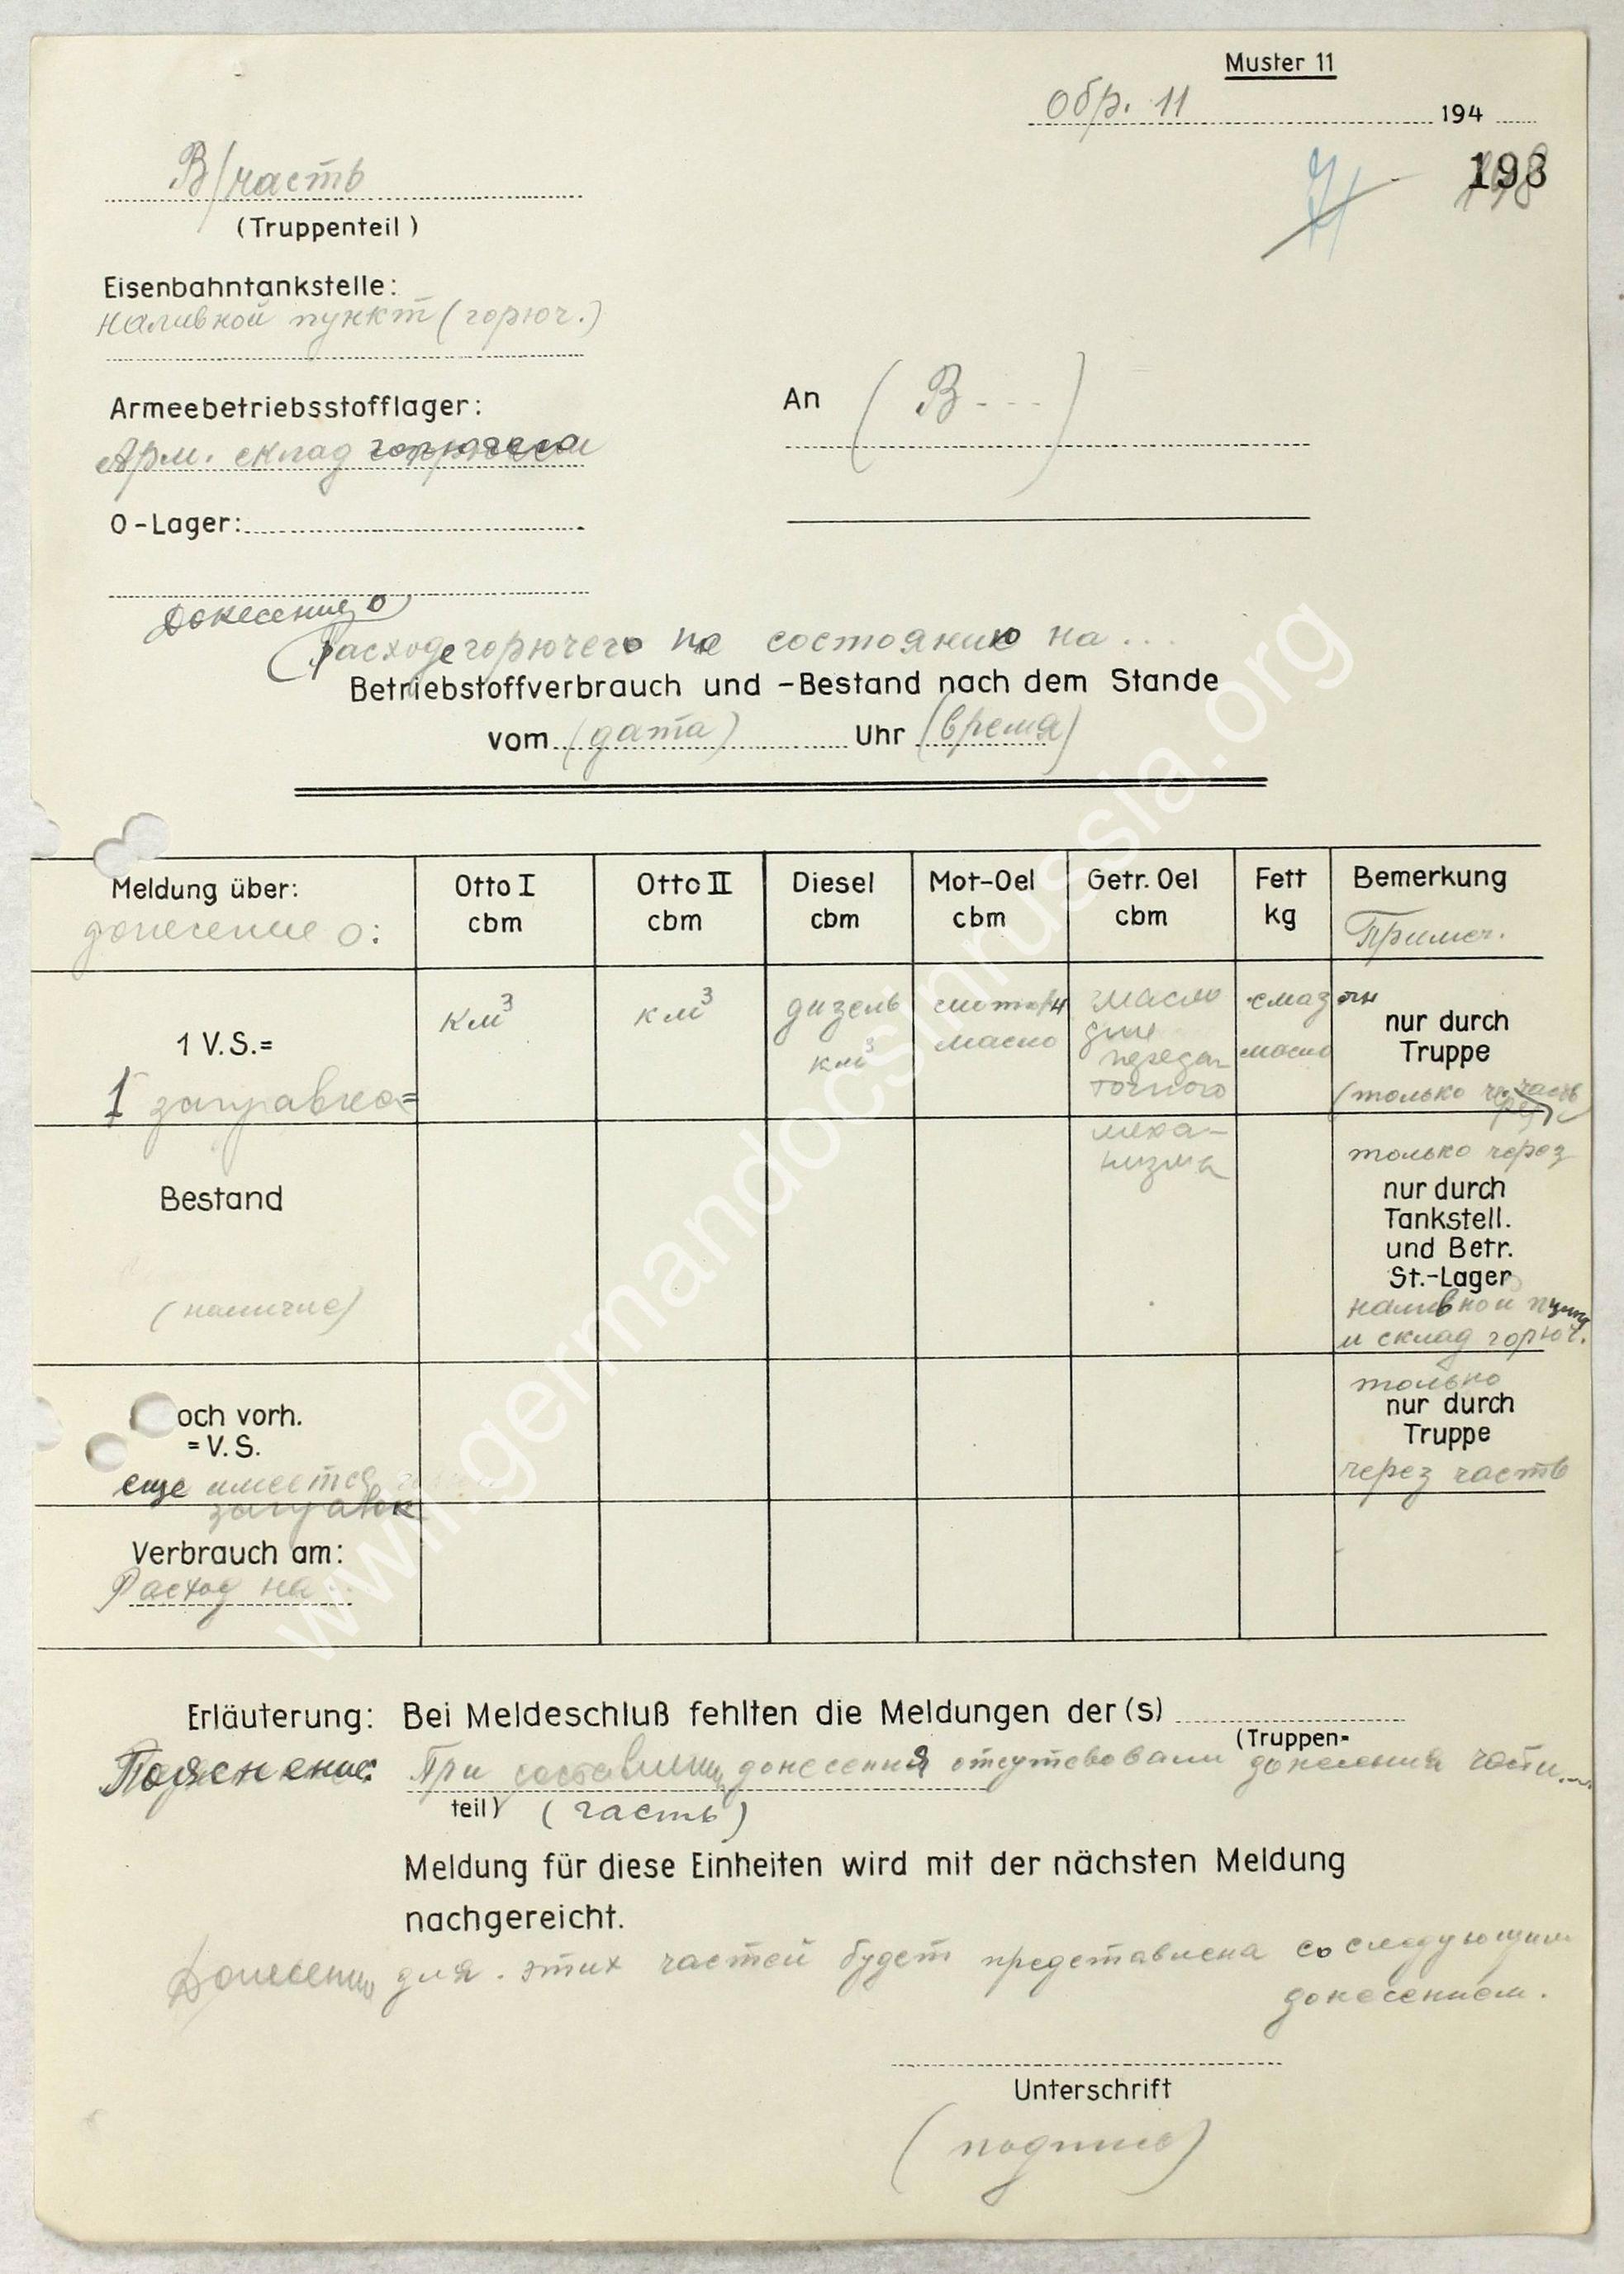 Muster 11
Обр. 11 194
В/часть
193
(Truppenteil)
Eisenbahntankstelle:
Наливной пункт (горюч.)
Armeebetriebsstofflager:
Арм. склад горючего
An (В---)
O-Lager:
Донесение о
Расходе горючего по состоянию на ...
Betriebstoffverbrauch und -Bestand nach dem Stande
vom (дата) Uhr (время)
Meldung über: Otto I cbm Otto II cbm Diesel cbm Mot-Oel cbm Getr. Oel cbm Fett kg Bemerkung
донесение о: Примеч.
1 V.S.= км³ км³ дизель км³ моторн масло масло для передаточного механизма смазочн масло nur durch Truppe
1 заправка= (только через часть
Bestand только через
nur durch
Tankstell.
und Betr.
St.-Lager
(наличие) наливной пункт
и склад горюч.
только
och vorh. nur durch
=V.S. Truppe
еще имеется через часть
заправок
Verbrauch am:
Расход на ...
Erläuterung: Bei Meldeschluß fehlten die Meldungen der(s)
(Truppen-
Пояснение: При составлении донесения отсутствовали донесения части...
teil) (часть)
Meldung für diese Einheiten wird mit der nächsten Meldung
nachgereicht.
Донесение для этих частей будет представлена со следующим
донесением.
Unterschrift
(подпись)
www.germandocsinrussia.org